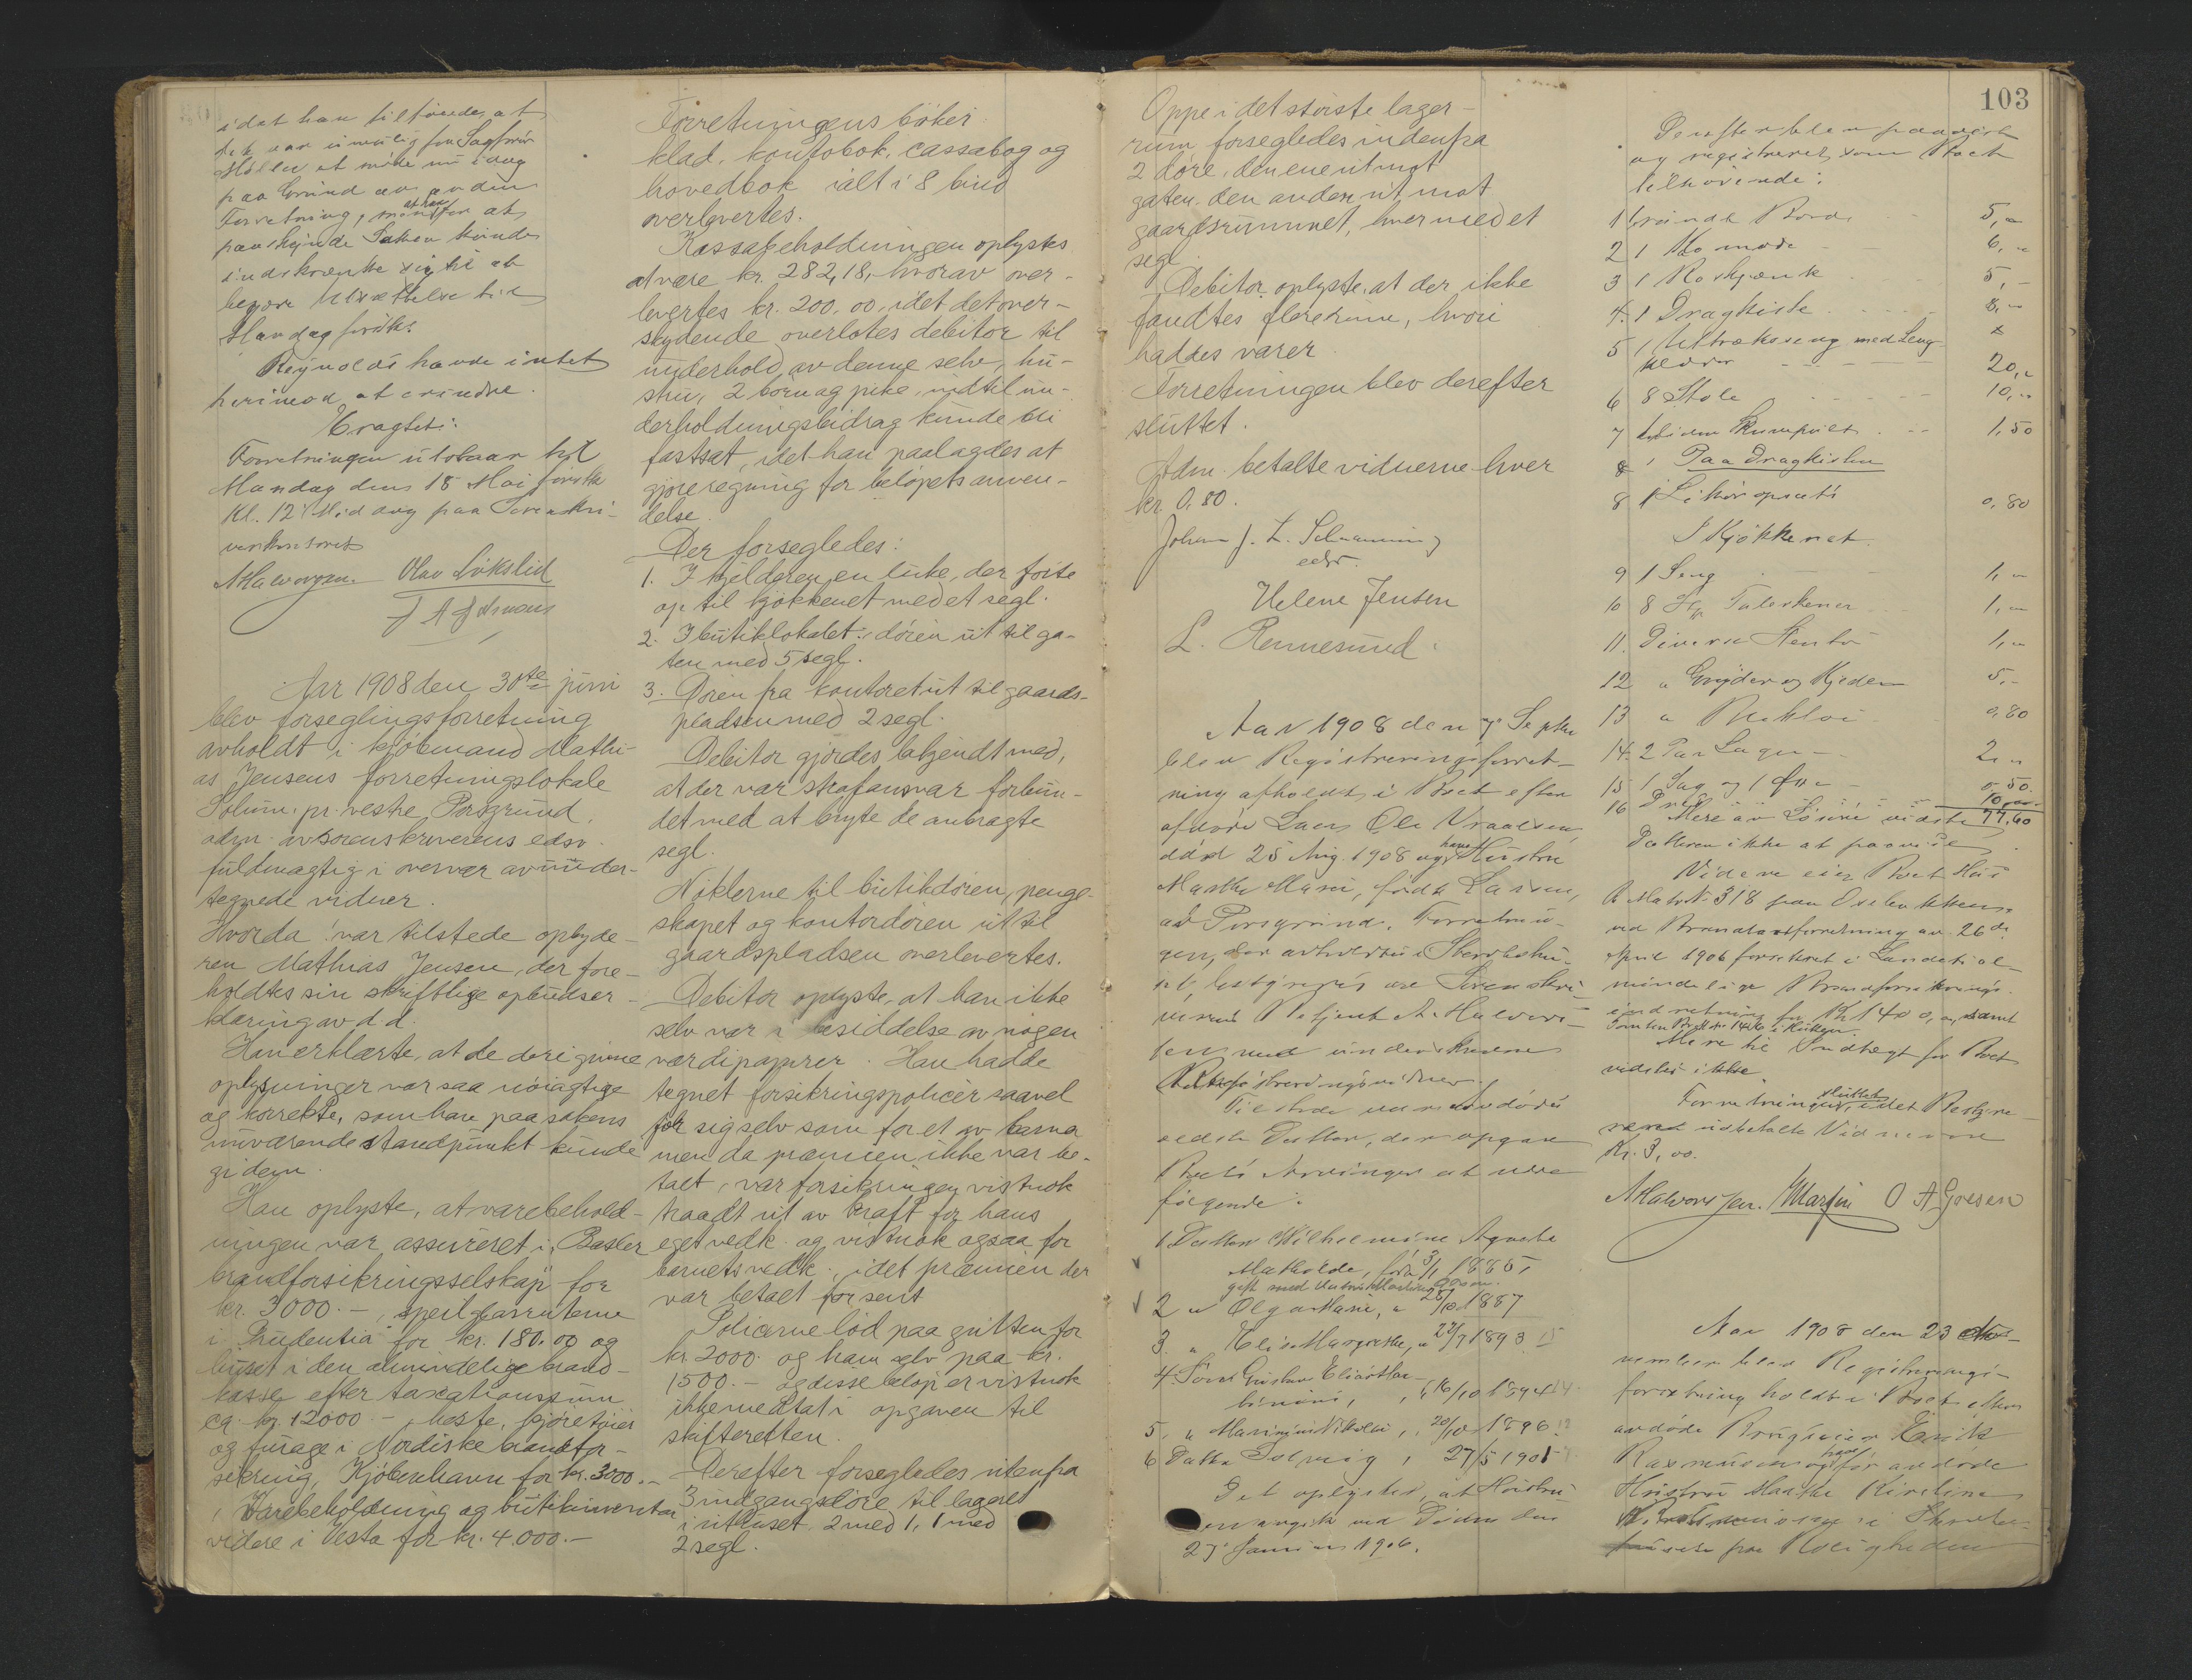 idet han tilföiede, at
det var umulig for Sagförer
Möller at möte nu idag
paa Grund av anden
Forretning, at han
paaskjynde Saken kunde
indskrænke sig til at
begjære Utsættelse til
Mandag förstk.
Reynolds havde intet
herimod at erindre.
Eragtet:
Forretningen utstaar til
Mandag den 18 Mai förstk.
Kl. 12 Middag paa Sorenskri-
verkontoret
AHalvorsen. Olav Lökslid
Aar 1908 den 30te juni
blev forseglingsforretning
avholdt i kjöbmand Mathi-
as Jensens forretningslokale
Solum pr. vestre Porsgrund.
adm. av sorenskriverens edsv.
fuldmægtig i overvær av under-
tegnede vidner.
Hvorda var tilstede opbyde-
ren Mathias Jensen, der fore-
holdtes sin skriftlige opbudser-
klæring av d.d.
Han erklærte, at de deri givne
oplysninger var saa nöiagtige
og korrekte, som han paa sakens
nuværende standpunkt kunde
gi dem.
Han oplyste, at varebehold-
ningen var assureret i "Basler
brandforsikringsselskap" for
kr. 3000.-, speilglasruterne
i "Prudentia" for kr. 180.00 og
huset i den almindelige brand-
kasse efter taxationssum
ca. kr. 12000.-, heste, kjöretöier
og furage i Nordiske brandfor-
sikring, Kjöbenhavn for kr. 3000.-
Varebeholdning og butikinventar
videre i Vesta for kr. 4.000.-
Forretningens böker
klad, kontobok, cassabog og
hovedbok ialt i 8 bind
overlevertes.
Kassabeholdningen oplystes
at være kr. 282,18, hvorav over-
levertes kr. 200.00, idet det over-
skydende overlotes debitor til
underhold av denne selv, hu-
stru, 2 börn og pike, indtil un-
derholdningsbidrag kunde bli
fastsat, idet han paalagdes at
gjöre regning for belöpets anven-
delse.
Der forsegledes:
1. I kjelderen en luke, der förte
op til kjökkenet med et segl.
2. I butiklokalet: dören ut til ga-
ten med 5 segl.
3. Dören fra kontoret ut til gaards-
pladsen med 2 segl.
Debitor gjordes bekjendt med,
at der var strafansvar forbun-
det med at bryte de anbragte
segl.
Nöklerne til butikdören, penge-
skapet og kontordören ut til
gaardspladsen overlevertes.
Debitor oplyste, at han ikke
selv var i besiddelse av nogen
værdipapirer. Han hadde
tegnet forsikringspolicer saavel
for sig selv som for et av barna
men da præmien ikke var be-
talt, var forsikringen vistnok
traadt ut av kraft for hans
eget vedk. og vistnok ogsaa for
barnets vedk., idet præmien der
var betalt for sent
Policerne löd paa gutten for
kr. 2000. og ham selv paa kr.
1500.- og disse belöp er vistnok
ikke medtat i opgaven til
skifteretten.
Derefter forsegledes utenfra
3 indgangsdöre til lageret
i uthuset, 2 med 1, 1 med
2 segl.
103
Oppe i det störste lager-
rum forsegledes indenfra
2 döre, den ene ut mot
gaten, den anden ut mot
gaardsrummet, hver med et
segl.
Debitor oplyste, at der ikke
fandtes flere rum, hvori
haddes varer.
Forretningen blev derefter
sluttet.
Adm. betalte vidnerne hver
kr 0,80.
edsv.
Helene Jensen
L. Rennesund.
Aar 1908 den 7. Septbr
blev Registreringsforret-
ning afholdt i Boet efter
afdöde Lars Ole Vraalsen,
död 25 Aug. 1908 og hans Hustru
Marthe Marie, födt Larsen,
av Porsgrund. Forretnin-
gen, der avholdtes i Sterbohu-
set, bestyredes av Sorenskri-
verens Betjent A. Halvor-
sen med underskrevne
Registreringsvidner.
Tilstede var avdödes
ældste Datter, der opgav
Boets Arvinger at være
følgende:
1. Datter Wilhelmine Agnete
Mathilde, född 3/1 1885,
gift med
2 " Olga Marie, " 28/10 1887
3. " Elise Margrethe, " 27/7 1893 15
4. Sön Gustav Elias
16/10 1894 14
5. " Marinius Nikolai, 20/10 1896 12
6 Datter Solveig, 27/5 1901
Det oplystes, at Hustru-
en avgik ved Döden den
27 Januar 1906.
Derefter blev paavist
og registreret som Boet
tilhörende:
1 1 rundt Bord - 5,-
2 1 Komode - - 6,-
3 1 Roskjænk 5,-
4. 1 Dragkiste 8,-
5 1 Utræksseng med Seng-
klæder - - - 20,-
6 8 Stole 10,-
7 1,50
8 1 Paa Dragkisten
8 1 Liköropsats 0,80
I Kjökkenet.
9 1 Seng 1,-
10 8 1,-
11. Diverse Stentöi 1,-
12 " Gryder og Kjeder 5,-
13 " Bliktöi 0,80
14. 2 Par Lagen - 2,-
15 1 Sag og 1 Öxe - 0,50.
16 10,00
Mere av Lösöre vidste 77,60
Datteren ikke at paavise.
Videre eier Boet Hus
Matr. N. 318 paa Osebakken,
ved Brandtaxtforretning av 26de
April 1906 forsikret i Landets al-
mindelige Brandforsikrings-
indretning for Kr 1400,00, samt
Tomten
Mere til Indtægt for Boet
vidstes ikke.
Forretningen sluttet, idet Besty-
reren udbetalte Vidnerne
Kr. 3,00.
AHalvorsen. OAGoesen
Aar 1908 den 23 No-
vember blev Registrerings-
forretning holdt i Boet efter
avdöde Brugseier
Rasmussen og hans för avdöde
Hustru Maathe Kirstine
Forretningen i Sterbo-
huset paa Roligheden